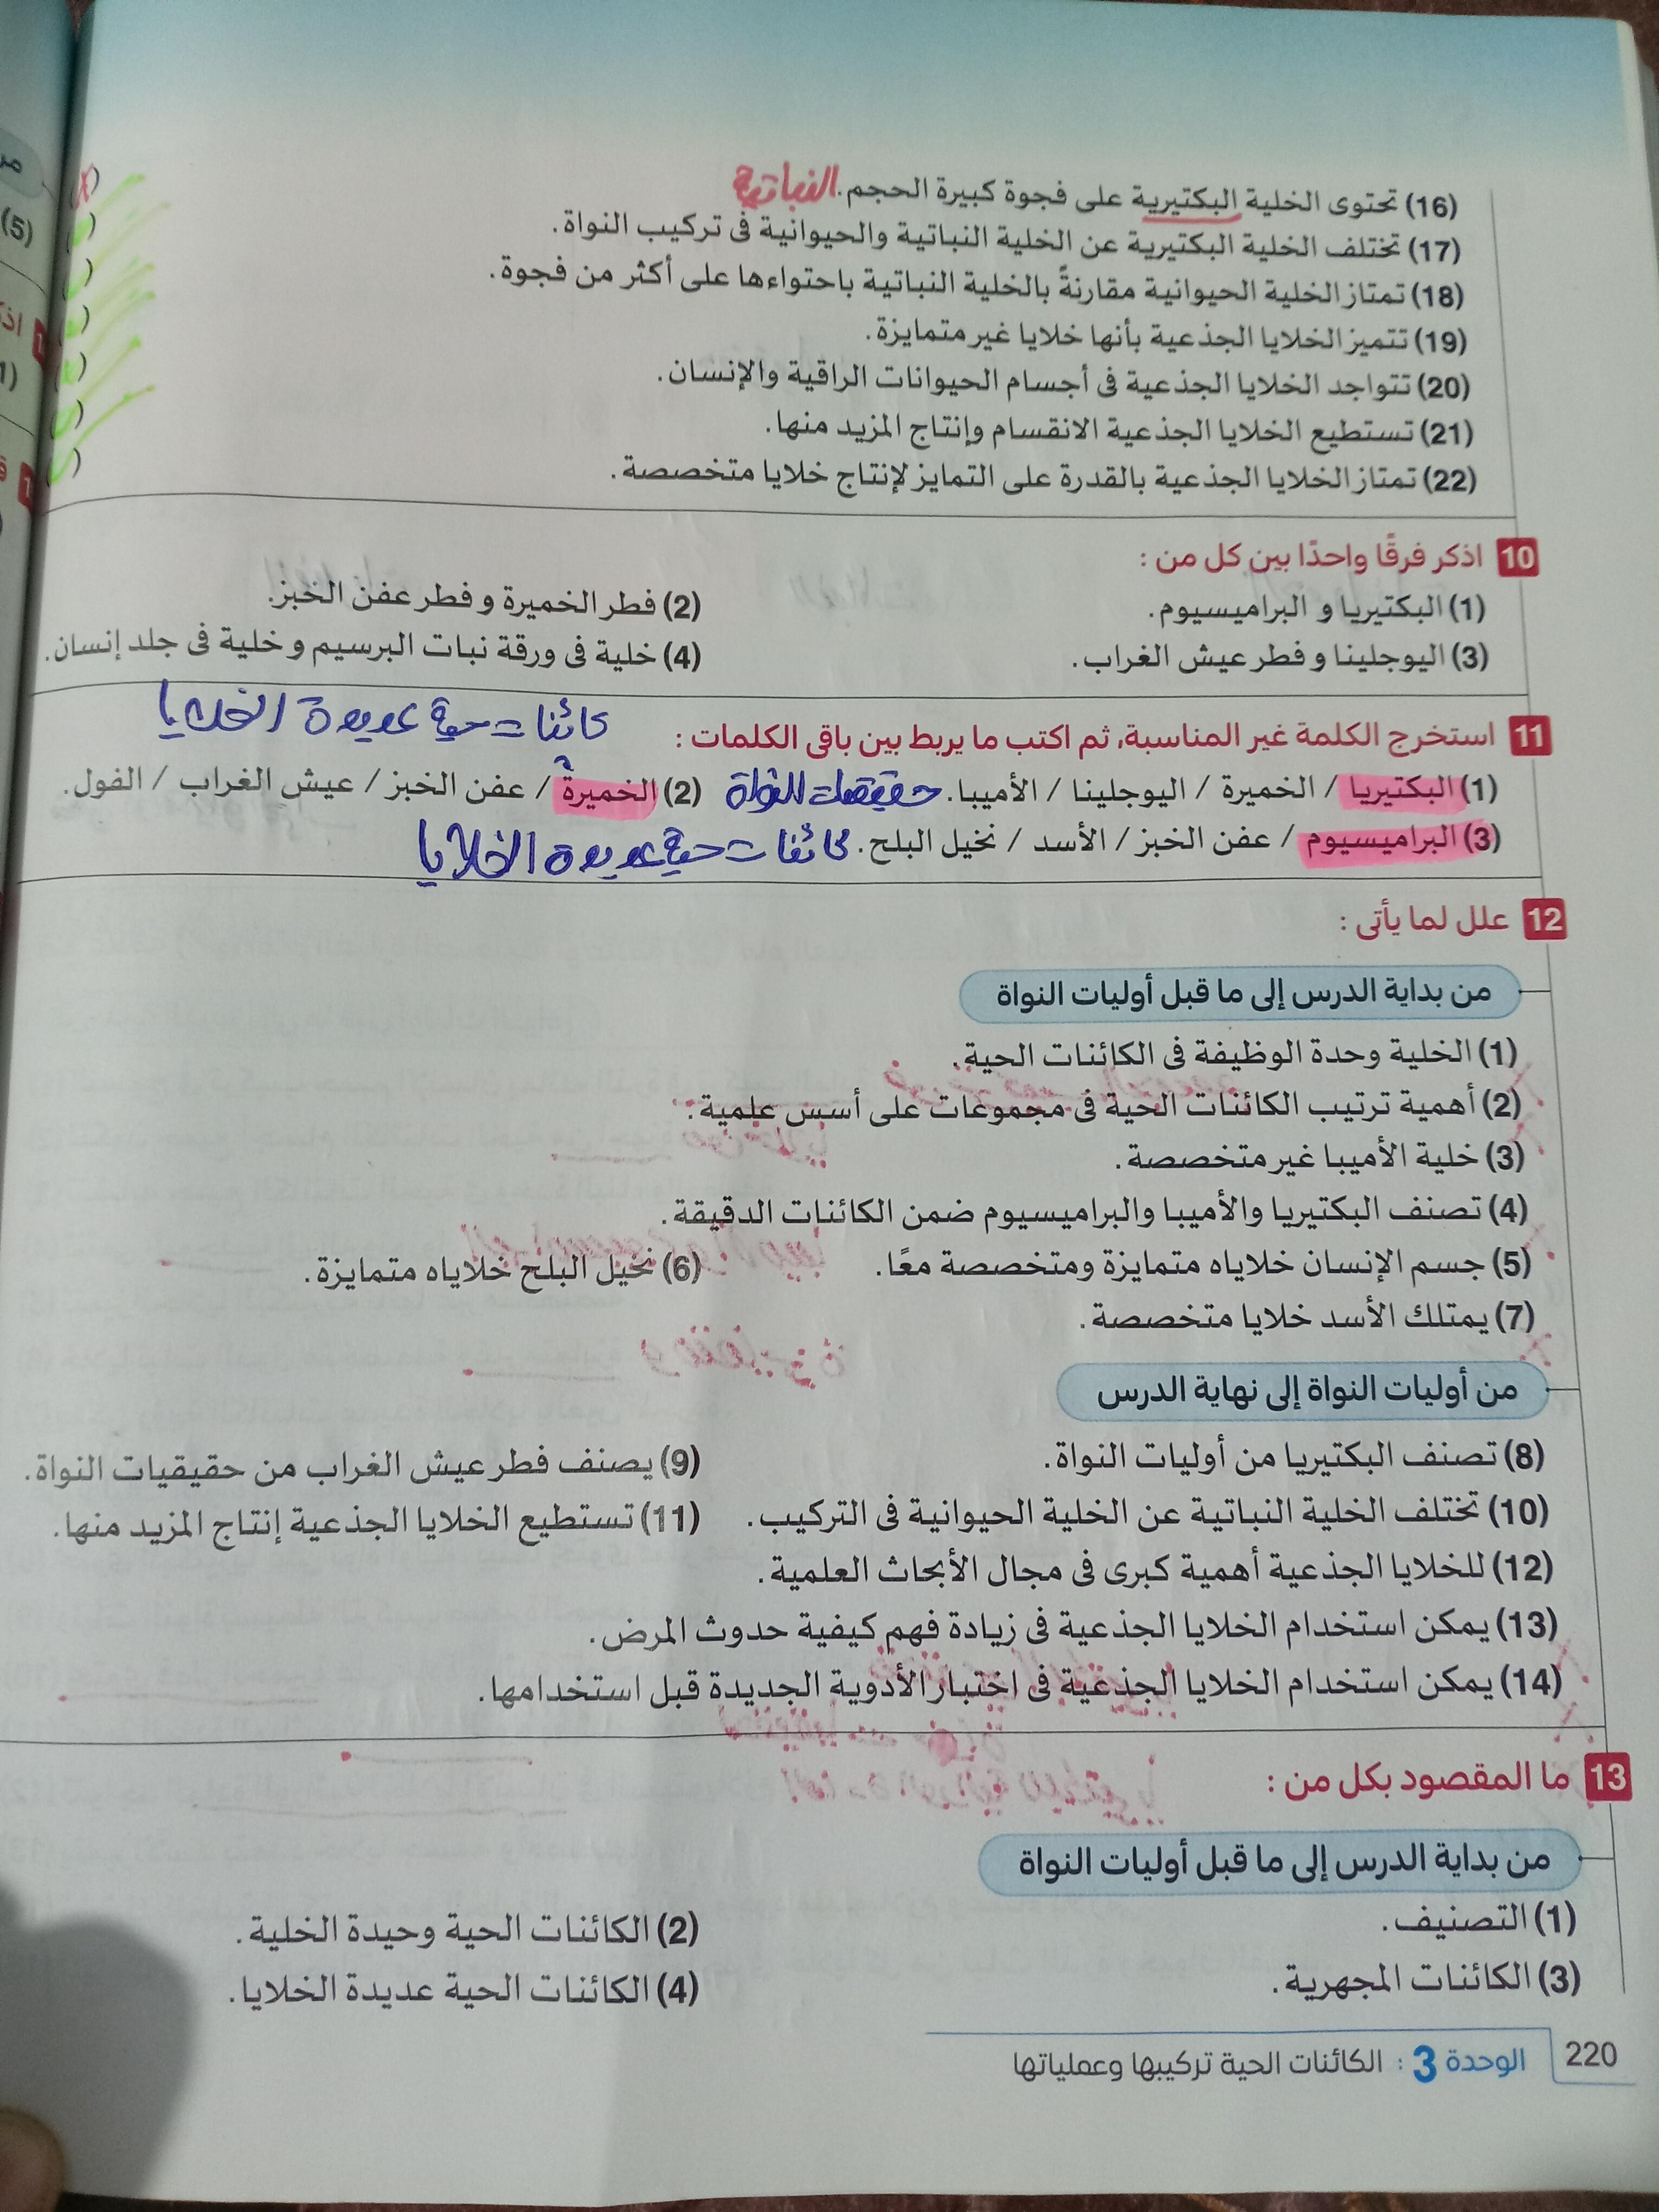 (16) تحتوى الخلية البكتيرية على فجوة كبيرة الحجم. النباتية
(17) تختلف الخلية البكتيرية عن الخلية النباتية والحيوانية فى تركيب النواة.
(18) تمتاز الخلية الحيوانية مقارنةً بالخلية النباتية باحتواءها على أكثر من فجوة.
(19) تتميز الخلايا الجذعية بأنها خلايا غير متمايزة.
(20) تتواجد الخلايا الجذعية فى أجسام الحيوانات الراقية والإنسان.
(21) تستطيع الخلايا الجذعية الانقسام وإنتاج المزيد منها.
(22) تمتاز الخلايا الجذعية بالقدرة على التمايز لإنتاج خلايا متخصصة.
10 اذكر فرقًا واحدًا بين كل من :
(1) البكتيريا و البراميسيوم. (2) فطر الخميرة و فطر عفن الخبز.
(3) اليوجلينا و فطر عيش الغراب. (4) خلية فى ورقة نبات البرسيم و خلية فى جلد إنسان.
11 استخرج الكلمة غير المناسبة، ثم اكتب ما يربط بين باقى الكلمات : كائنات حية عديدة الخلايا
(1) البكتيريا / الخميرة / اليوجلينا / الأميبا. حقيقيات النواة (2) الخميرة / عفن الخبز / عيش الغراب / الفول.
(3) البراميسيوم / عفن الخبز / الأسد / نخيل البلح. كائنات حية عديدة الخلايا
12 علل لما يأتى :
من بداية الدرس إلى ما قبل أوليات النواة
(1) الخلية وحدة الوظيفة فى الكائنات الحية.
(2) أهمية ترتيب الكائنات الحية فى مجموعات على أسس علمية.
(3) خلية الأميبا غير متخصصة.
(4) تصنف البكتيريا والأميبا والبراميسيوم ضمن الكائنات الدقيقة.
(5) جسم الإنسان خلاياه متمايزة ومتخصصة معًا. (6) نخيل البلح خلاياه متمايزة.
(7) يمتلك الأسد خلايا متخصصة.
من أوليات النواة إلى نهاية الدرس
(8) تصنف البكتيريا من أوليات النواة. (9) يصنف فطر عيش الغراب من حقيقيات النواة.
(10) تختلف الخلية النباتية عن الخلية الحيوانية فى التركيب. (11) تستطيع الخلايا الجذعية إنتاج المزيد منها.
(12) للخلايا الجذعية أهمية كبرى فى مجال الأبحاث العلمية.
(13) يمكن استخدام الخلايا الجذعية فى زيادة فهم كيفية حدوث المرض.
(14) يمكن استخدام الخلايا الجذعية فى اختبار الأدوية الجديدة قبل استخدامها.
13 ما المقصود بكل من :
من بداية الدرس إلى ما قبل أوليات النواة
(1) التصنيف. (2) الكائنات الحية وحيدة الخلية.
(3) الكائنات المجهرية. (4) الكائنات الحية عديدة الخلايا.
220 الوحدة 3 : الكائنات الحية تركيبها وعملياتها